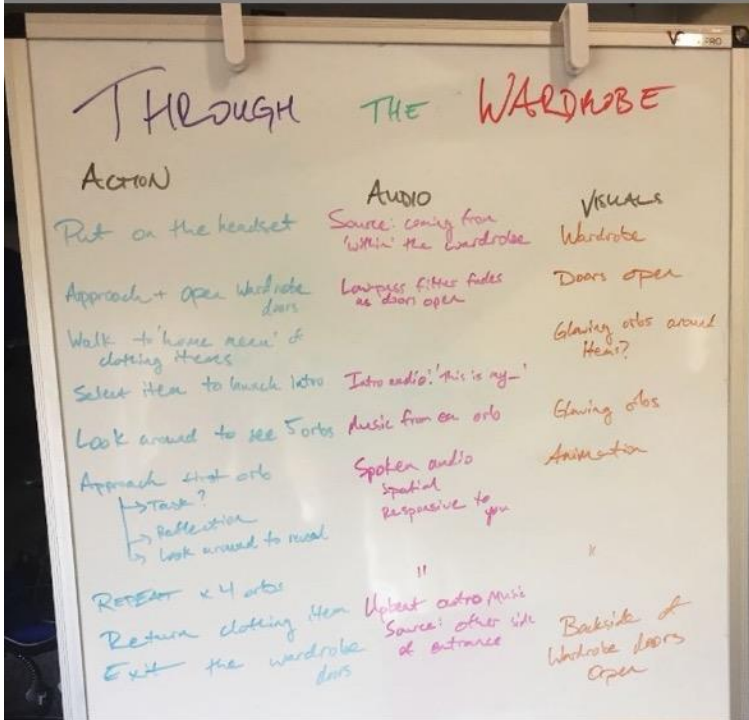 THROUGH THE WARDROBE
ACTION
Put on the headset
Approach + open wardrobe
doors
Walk to 'home menu' of
clothing items
Select item to launch intro
Look around to see 5 orbs
Approach first orb
↳ Task?
↳ Reflection
↳ Look around to reveal
REPEAT x 4 orbs
Return clothing item
Exit the wardrobe
doors
AUDIO
Source: coming from
'within' the wardrobe
Low pass filter fades
as doors open
Intro audio: 'This is my_'
Music from ea orb
Spoken audio
spatial
Responsive to
you
"
Upbeat outro Music
Source: other side
of entrance
VISUALS
Wardrobe
Doors open
Glowing orbs around
items?
Glowing orbs
Animation
"
Backside of
Wardrobe doors
open
PRO